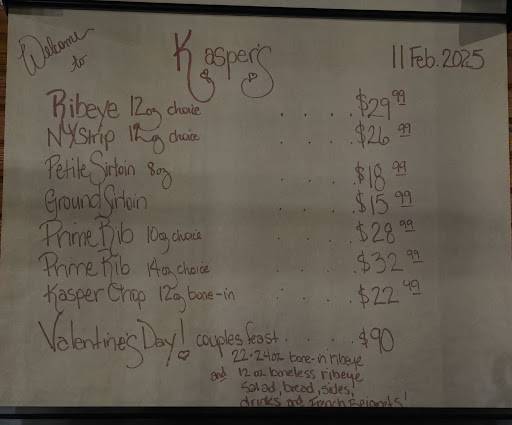 Welcome to Kasper's 11 Feb. 2025
Ribeye 12oz choice . . . . $29 99
NY Strip 12oz choice . . . . $26 99
Petite Sirloin 8oz . . . . $18 99
Ground Sirloin . . . . $15 99
Prime Rib 10oz choice . . . . $28 99
Prime Rib 14oz choice . . . . $32 99
Kasper Chop 12oz bone-in . . . . $22 49
Valentine's Day! couples feast . . . . $90
22-24oz bone-in ribeye
and 12 oz boneless ribeye
Salad, bread, sides,
drinks, and French Beignets!